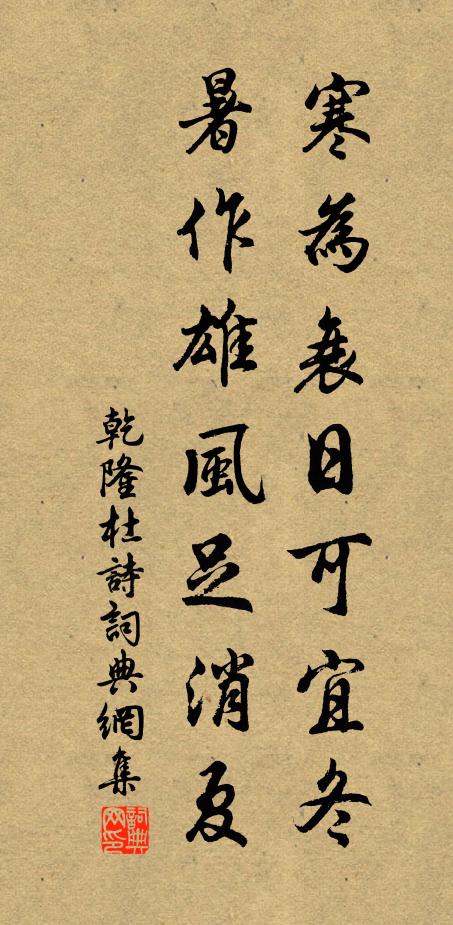 寒為衰日可宜冬
暑作雄風足消夏
乾隆杜詩詞典網集
詞典
网印